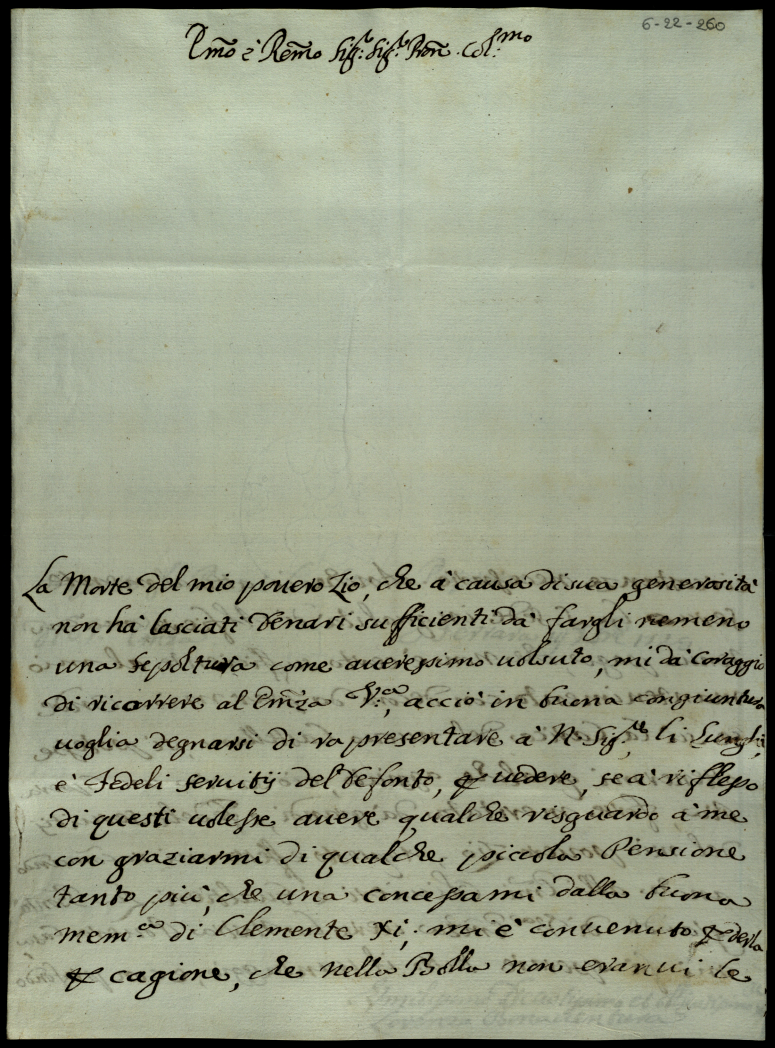 6-22-260
Emõ è Remõ Sig:r Sig:r Pron. Col:mo
La Morte del mio pouero Zio, che à causa di sua generosità
non hà lasciati denari sufficienti dà fargli nemeno
una sepoltura come aueressimo uolsuto, mi dà coraggio
di ricorrere al Emza V:ra, acciò in buona congiuntura
uoglia degnarsi di rapresentare à N. Sig:re li Lunghi,
è Fedeli seruitij del Defonto, ꝑ uedere, se à riflesso
di questi uolesse auere qualche risguardo à me
con graziarmi di qualche piccola Pensione
tanto più, che una concessami dalla buona
mem:a di Clemente XI, mi è conuenuto ꝑderla
ꝑ cagione, che nella Bolla non eranui le